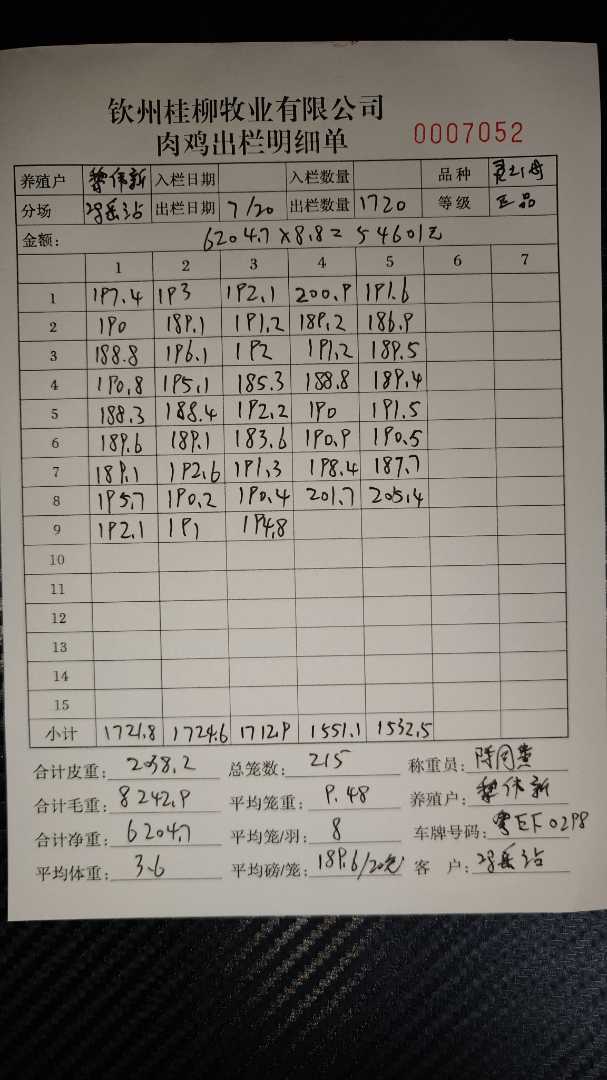 钦州桂柳牧业有限公司
肉鸡出栏明细单 0007052
养殖户 黎伟新 入栏日期 入栏数量 品种
分场 出栏日期 7/20 出栏数量 1720 等级 正品
金额: 6204.7×8.8=54601元
1 2 3 4 5 6 7
1 197.4 193 192.1 200.9 191.6
2 190 189.1 191.2 189.2 186.9
3 188.8 196.1 192 191.2 189.5
4 190.8 195.1 185.3 188.8 189.4
5 188.3 188.4 192.2 190 191.5
6 189.6 189.1 183.6 190.9 190.5
7 189.1 192.6 191.3 198.4 187.7
8 195.7 190.2 190.4 201.7 205.4
9 192.1 191 194.8
10
11
12
13
14
15
小计 1721.8 1724.6 1712.9 1551.1 1532.5
合计皮重: 2038.2 总笼数: 215 称重员:
合计毛重: 8242.9 平均笼重: 9.48 养殖户: 黎伟新
合计净重: 6204.7 平均笼/羽: 8 车牌号码: 粤EF0298
平均体重: 3.6 平均磅/笼: 189.6/20 客 户: